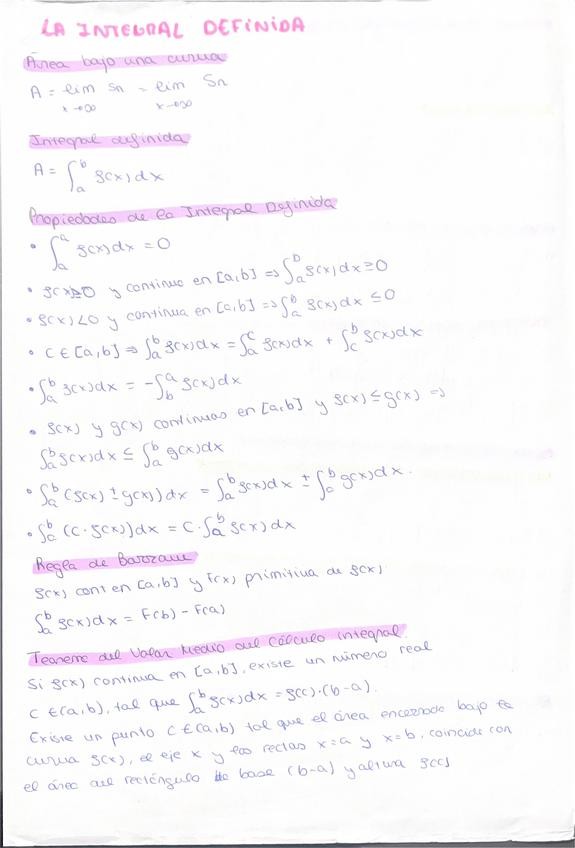 LA INTEGRAL DEFINIDA
Área bajo una curva
A = lim Sn = lim Sn
x→∞ x→∞
Integral definida
A = ∫_a^b f(x) dx
Propiedades de la Integral Definida
• ∫_a^a f(x) dx = 0
• f(x) ≥ 0 y continua en [a,b] => ∫_a^b f(x) dx ≥ 0
• f(x) < 0 y continua en [a,b] => ∫_a^b f(x) dx ≤ 0
• c ∈ [a,b] => ∫_a^b f(x) dx = ∫_a^c f(x) dx + ∫_c^b f(x) dx
• ∫_a^b f(x) dx = -∫_b^a f(x) dx
• f(x) y g(x) continuas en [a,b] y f(x) ≤ g(x) =>
∫_a^b f(x) dx ≤ ∫_a^b g(x) dx
• ∫_a^b (f(x) ± g(x)) dx = ∫_a^b f(x) dx ± ∫_c^b g(x) dx.
• ∫_a^b (c · f(x)) dx = c · ∫_a^b f(x) dx
Regla de Barrow
f(x) cont en [a,b] y F(x) primitiva de f(x).
∫_a^b f(x) dx = F(b) - F(a)
Teorema del Valor Medio del Cálculo integral.
Si f(x) continua en [a,b], existe un número real
c ∈ (a,b), tal que ∫_a^b f(x) dx = f(c)·(b-a).
Existe un punto c ∈ (a,b) tal que el área encerrada bajo la
curva f(x), el eje x y las rectas x=a y x=b, coincide con
el área del rectángulo de base (b-a) y altura f(c)